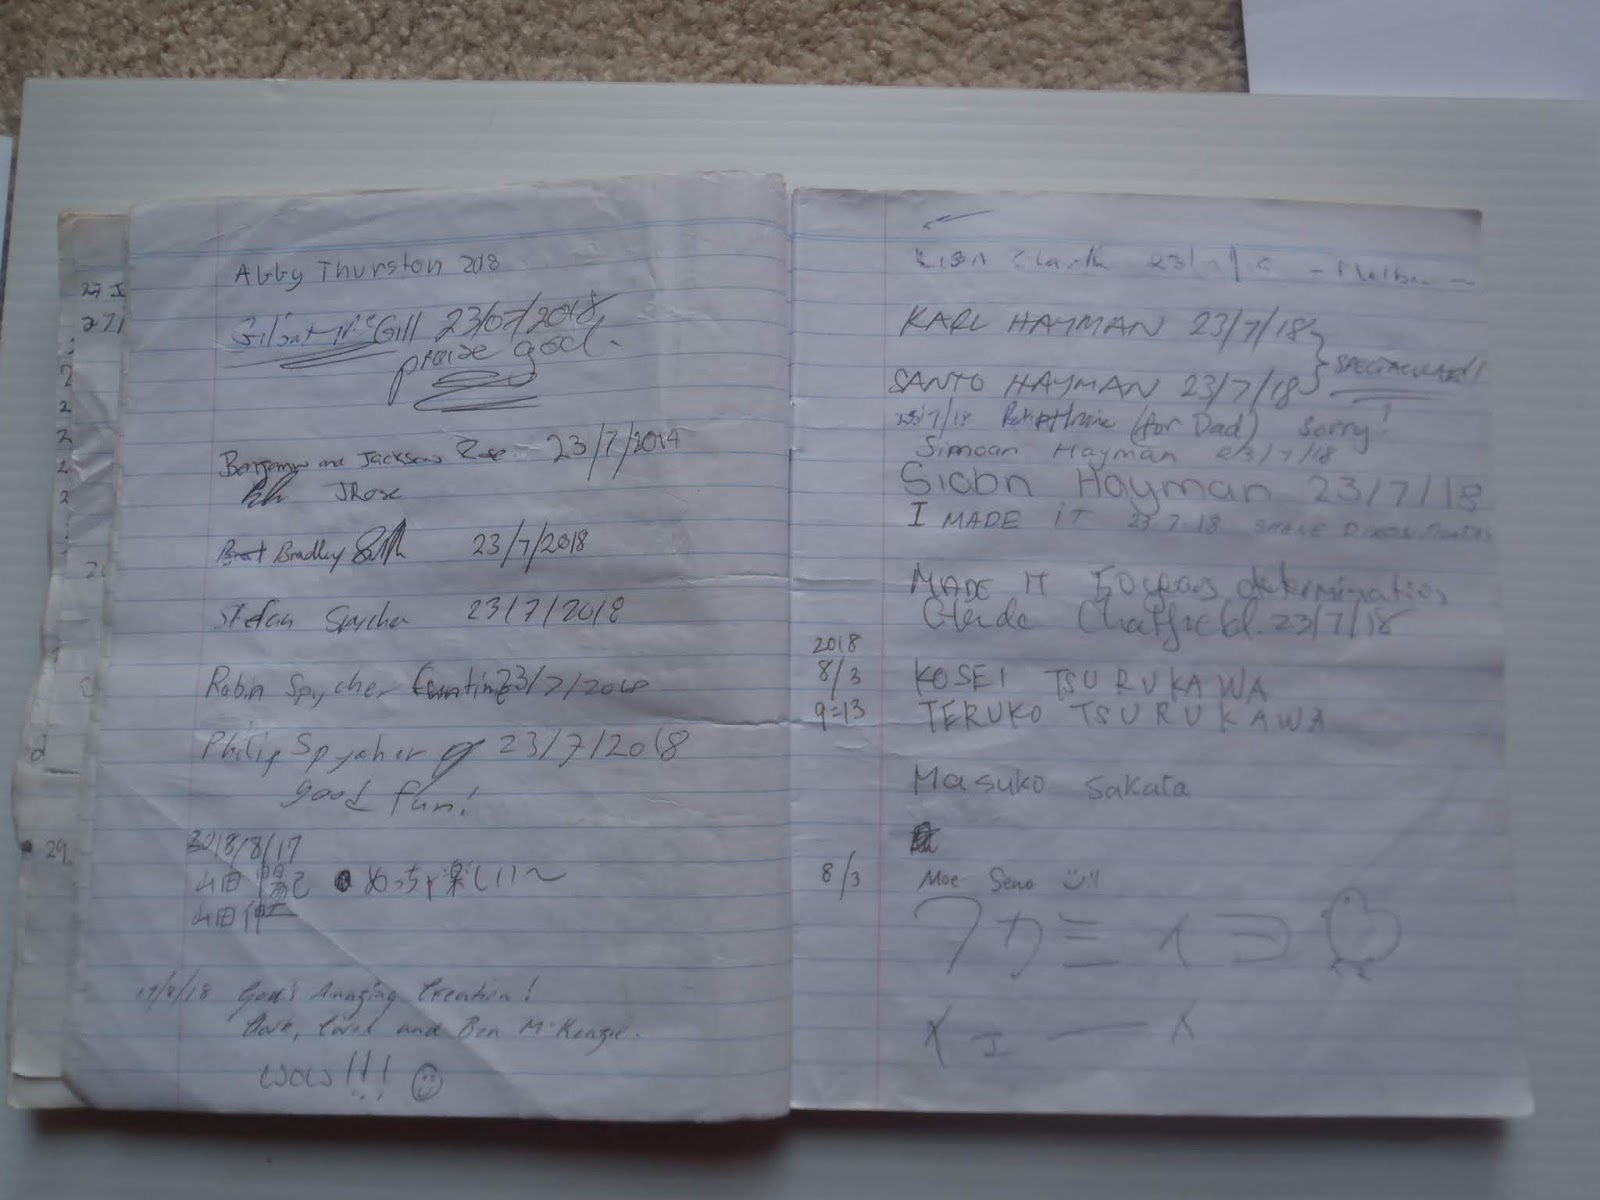 27 I
27/
2
2
2
2
2
2
d
29
Abby Thurston 2018
Gill 23/07/2018
praise god.
Benjamin and Jackson Rose 23/7/2014
JRose
Bradley 23/7/2018
Stefan Spycher 23/7/2018
Robin Spycher 23/7/2018
Philip Spycher 23/7/2018
good fun!
2018/8/17
山田 陽己 めっちゃ楽しい〜
山田伸
17/8/18 God's Amazing Creation!
and Ben McKenzie.
WOW!!! ☺
23/
KARL HAYMAN 23/7/18
SPECTACULAR!!
SANTO HAYMAN 23/7/18
23/7/18 (for Dad) Sorry!
Simoan Hayman 23/7/18
Siobn Hayman 23/7/18
I MADE iT 23 7 18
MADE IT 50 years determination
Chatfield. 23/7/18
2018
8/3 KOSEI TSURUKAWA
9:13 TERUKO TSURUKAWA
Masuko Sakata
8/3 Moe Seno
ワカミイコ